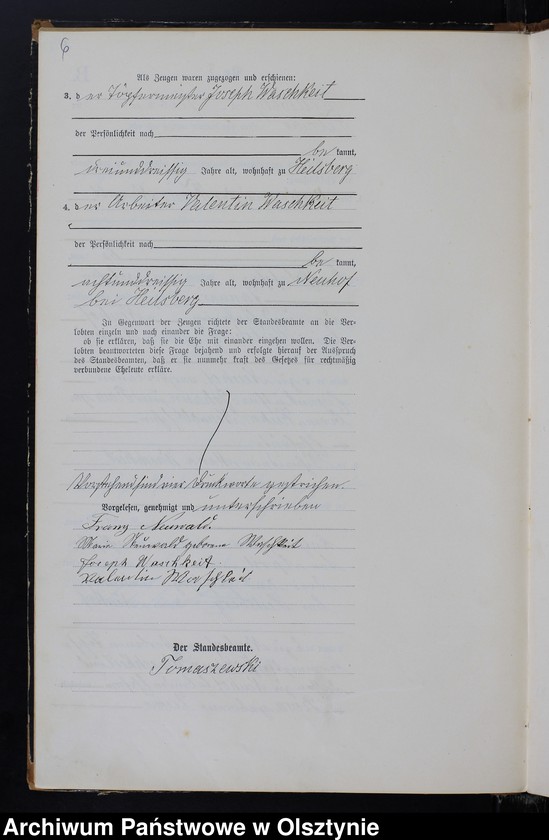 6
Als Zeugen waren zugezogen und erschienen:
3. der Töpfermeister Joseph Waschkeit
der Persönlichkeit nach
be kannt,
dreiunddreissig Jahre alt, wohnhaft zu Heilsberg
4. der Arbeiter Valentin Waschkeit
der Persönlichkeit nach
be kannt,
achtunddreissig Jahre alt, wohnhaft zu Neuhof
bei Heilsberg
In Gegenwart der Zeugen richtete der Standesbeamte an die Ver-
lobten einzeln und nach einander die Frage:
ob sie erklären, daß sie die Ehe mit einander eingehen wollen. Die Ver-
lobten beantworteten diese Frage bejahend und erfolgte hierauf der Ausspruch
des Standesbeamten, daß er sie nunmehr kraft des Gesetzes für rechtmäßig
verbundene Eheleute erkläre.
Vorstehend sind vier Druckworte gestrichen.
Vorgelesen, genehmigt und unterschrieben
Franz Neuwald.
Maria Neuwald geborene Waschkeit
Joseph Waschkeit
Valentin Waschkeit
Der Standesbeamte.
Tomaszewski
Archiwum Państwowe w Olsztynie